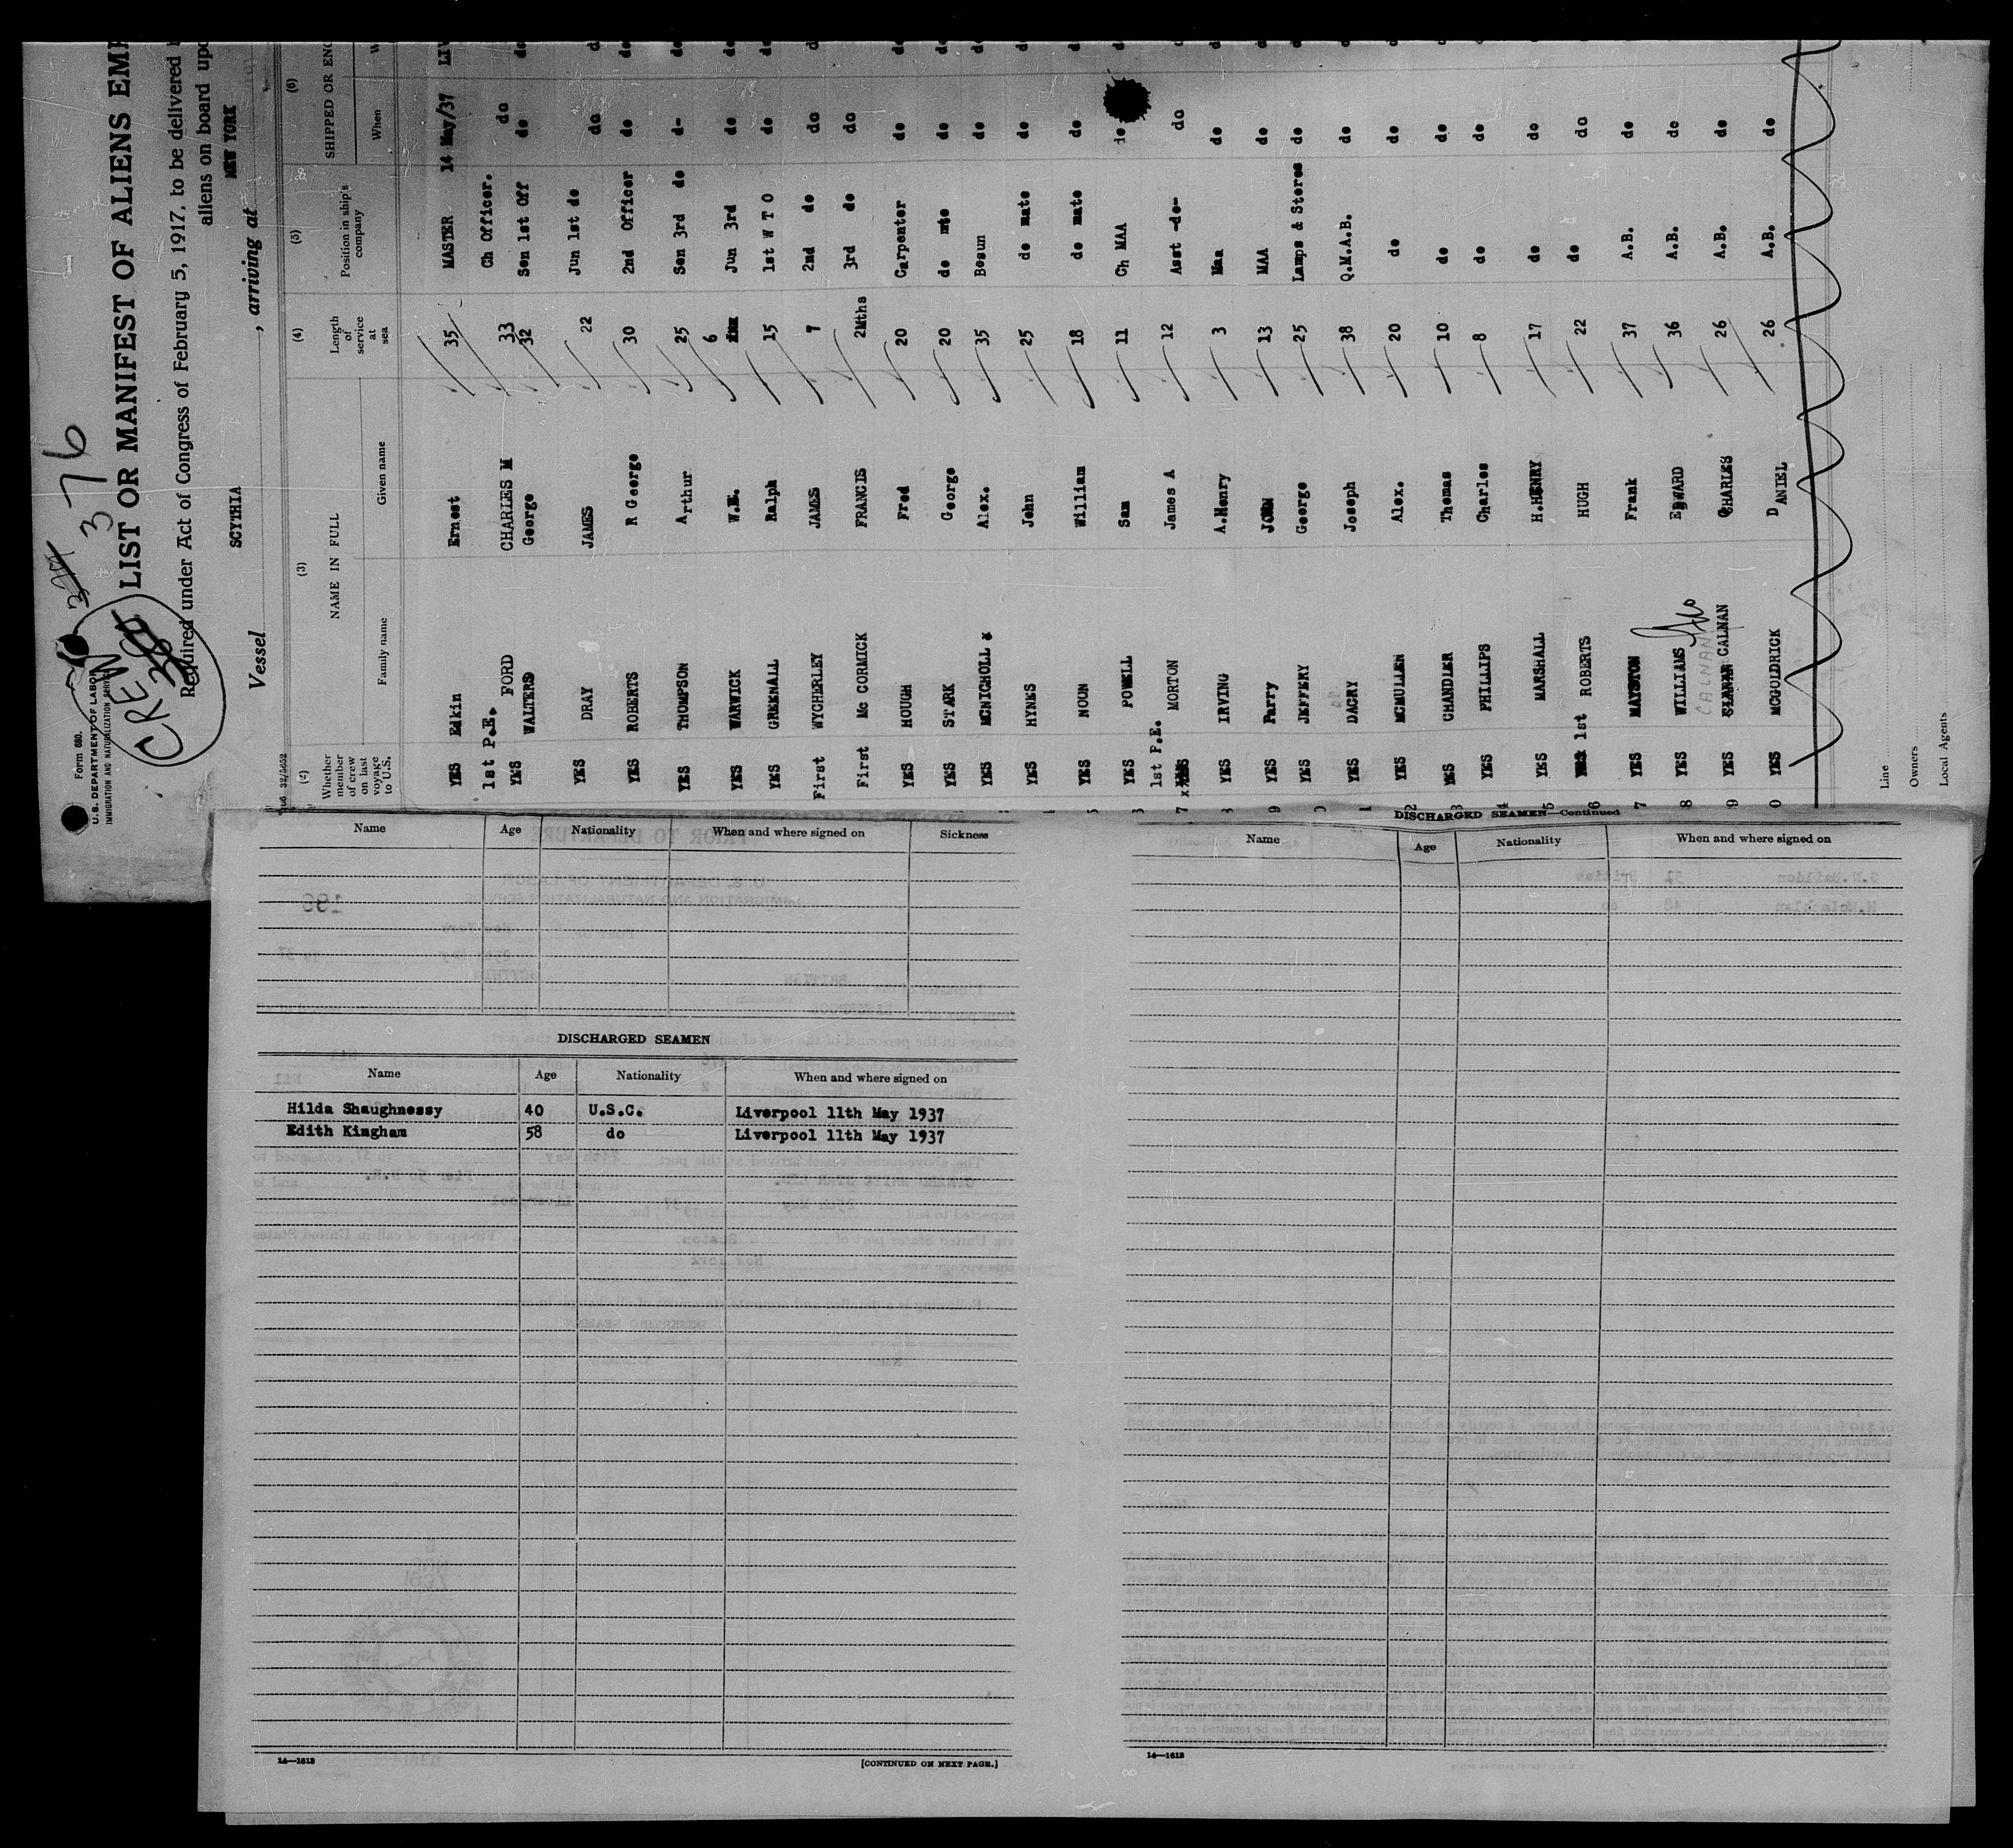 Form 680.
U.S. DEPARTMENT OF LABOR
IMMIGRATION AND NATURALIZATION SERVICE
CREW
376
LIST OR MANIFEST OF ALIENS EMP
Required under Act of Congress of February 5, 1917, to be delivered
aliens on board upo
Vessel SCYTHIA, arriving at NEW YORK
(2) (3) (4) (5) (6)
Whether member of crew on last voyage to U.S. NAME IN FULL Length of service at sea Position in ship's company SHIPPED OR ENG
Family name Given name When W
YES Edkin Ernest 35 MASTER 14 May/37 LIV
1st P.E. FORD CHARLES M 33 Ch Officer. do
YES WALTERS George 32 Sen 1st Off do do
YES DRAY JAMES 22 Jun 1st do do d
YES ROBERTS R George 30 2nd Officer do do
YES THOMPSON Arthur 25 Sen 3rd do d- do
YES WARWICK W.E. 6 Jun 3rd do do
YES GREENALL Ralph 15 1st W T O do do
First WYCHERLEY JAMES 7 2nd do do d
First Mc CORMICK FRANCIS 2Mths 3rd do do
YES HOUGH Fred 20 Carpenter do do
YES STARK George 20 do mte do do
YES MCNICHOLL Alex. 35 Bosun do do
YES HYNES John 25 do mate do d
YES NOON William 18 do mate do d
YES POWELL Sam 11 Ch MAA d
1st P.E. MORTON James A 12 Asst -do- do d
YES IRVING A.Henry 3 Maa do d
YES Parry JOHN 13 MAA do d
YES JEFFERY George 25 Lamps & Stores do d
YES DACRY Joseph 38 Q.M.A.B. do d
YES MCMULLEN Alex. 20 do do d
YES CHANDLER Thomas 10 do do d
YES PHILLIPS Charles 8 do do
YES MARSHALL H.HENRY 17 do do d
1st ROBERTS HUGH 22 do do d
YES MAYSTON Frank 37 A.B. do d
YES WILLIAMS EDWARD 36 A.B. do d
CALNAN
YES CALNAN CHARLES 26 A.B. do d
YES MCGOLDRICK DANIEL 26 A.B. do d
Line
Owners
Local Agents
Name Age Nationality When and where signed on Sickness
DISCHARGED SEAMEN
Name Age Nationality When and where signed on
Hilda Shaughnessy 40 U.S.C. Liverpool 11th May 1937
Edith Kingham 58 do Liverpool 11th May 1937
14—1613 [CONTINUED ON NEXT PAGE.]
DISCHARGED SEAMEN—Continued
Name Age Nationality When and where signed on
14—1613